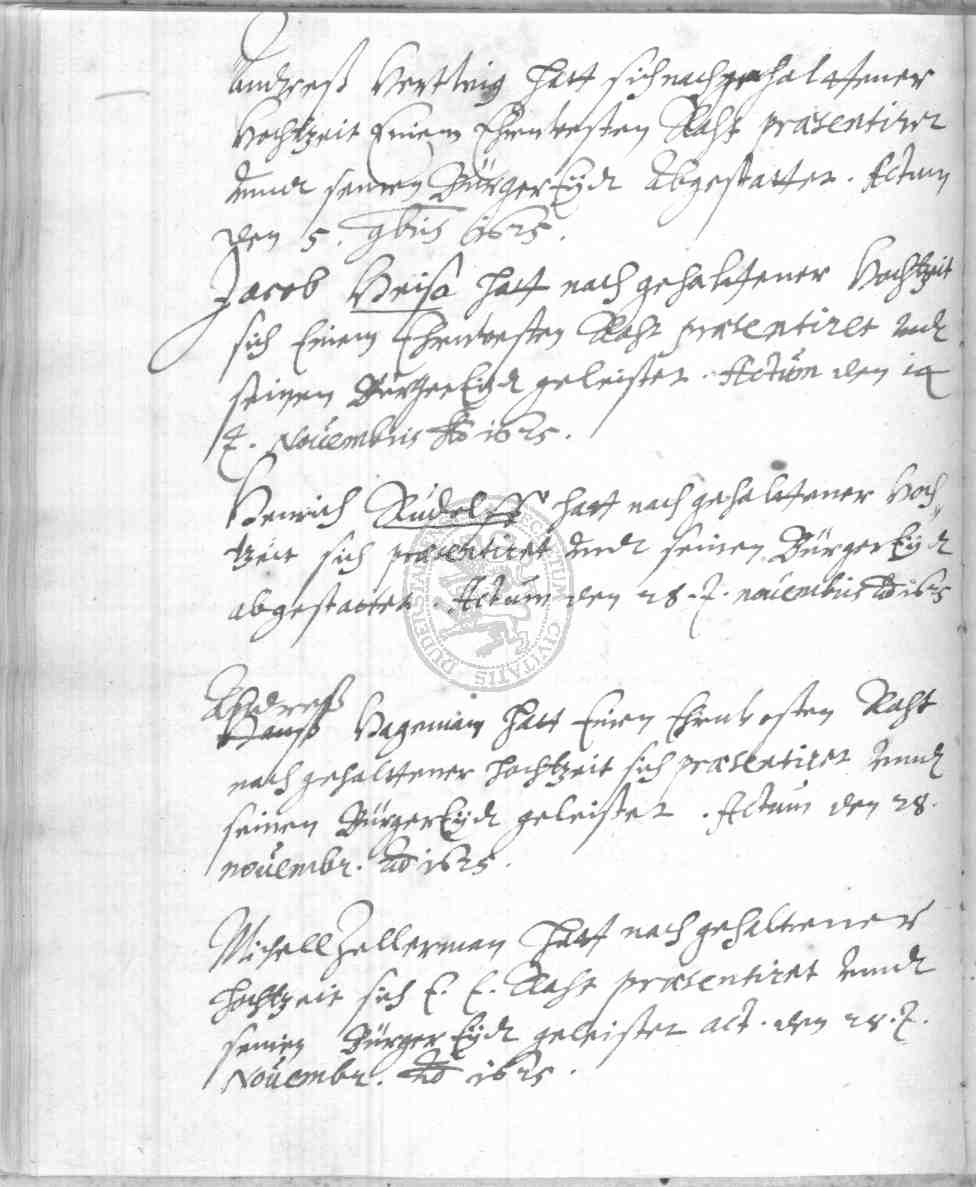 Andreß Hertwig hatt sich nach gehaltener
Hochtzeit Einem Ehrnvesten Raht præsentiret
vnndt seinen Bürger Eÿdt abgestattet. Actum
den 5. 9bris 1625.
Jacob Heise hatt nach gehaltener Hochtzeit
sich Einem Ehrnvesten Raht præsentiret vndt
seinen Bürger Eydt geleistet. Actum den 14
t. Nouembris Ao 1625.
Henrich Rudolff hatt nach gehaltener Hoch
tzeit sich præsentiret vndt seinen Bürger Eÿdt
abgestattet. Actum den 28. t. nouembris Ao 1625
Andreß
Hanß Hageman hatt Einen Ehrnvesten Raht
nach gehalttener hochtzeit sich præsentiret vnndt
seinen Bürger Eÿdt geleistet. Actum den 28.
nouembr. Ao 1625.
Michell Zellerman hatt nach gehaltener
hochtzeit sich E. E. Raht præsentiret vnndt
seinen Bürger Eÿdt geleistet act. den 28. t.
Nouembr. Ao 1625.
CIVITATIS